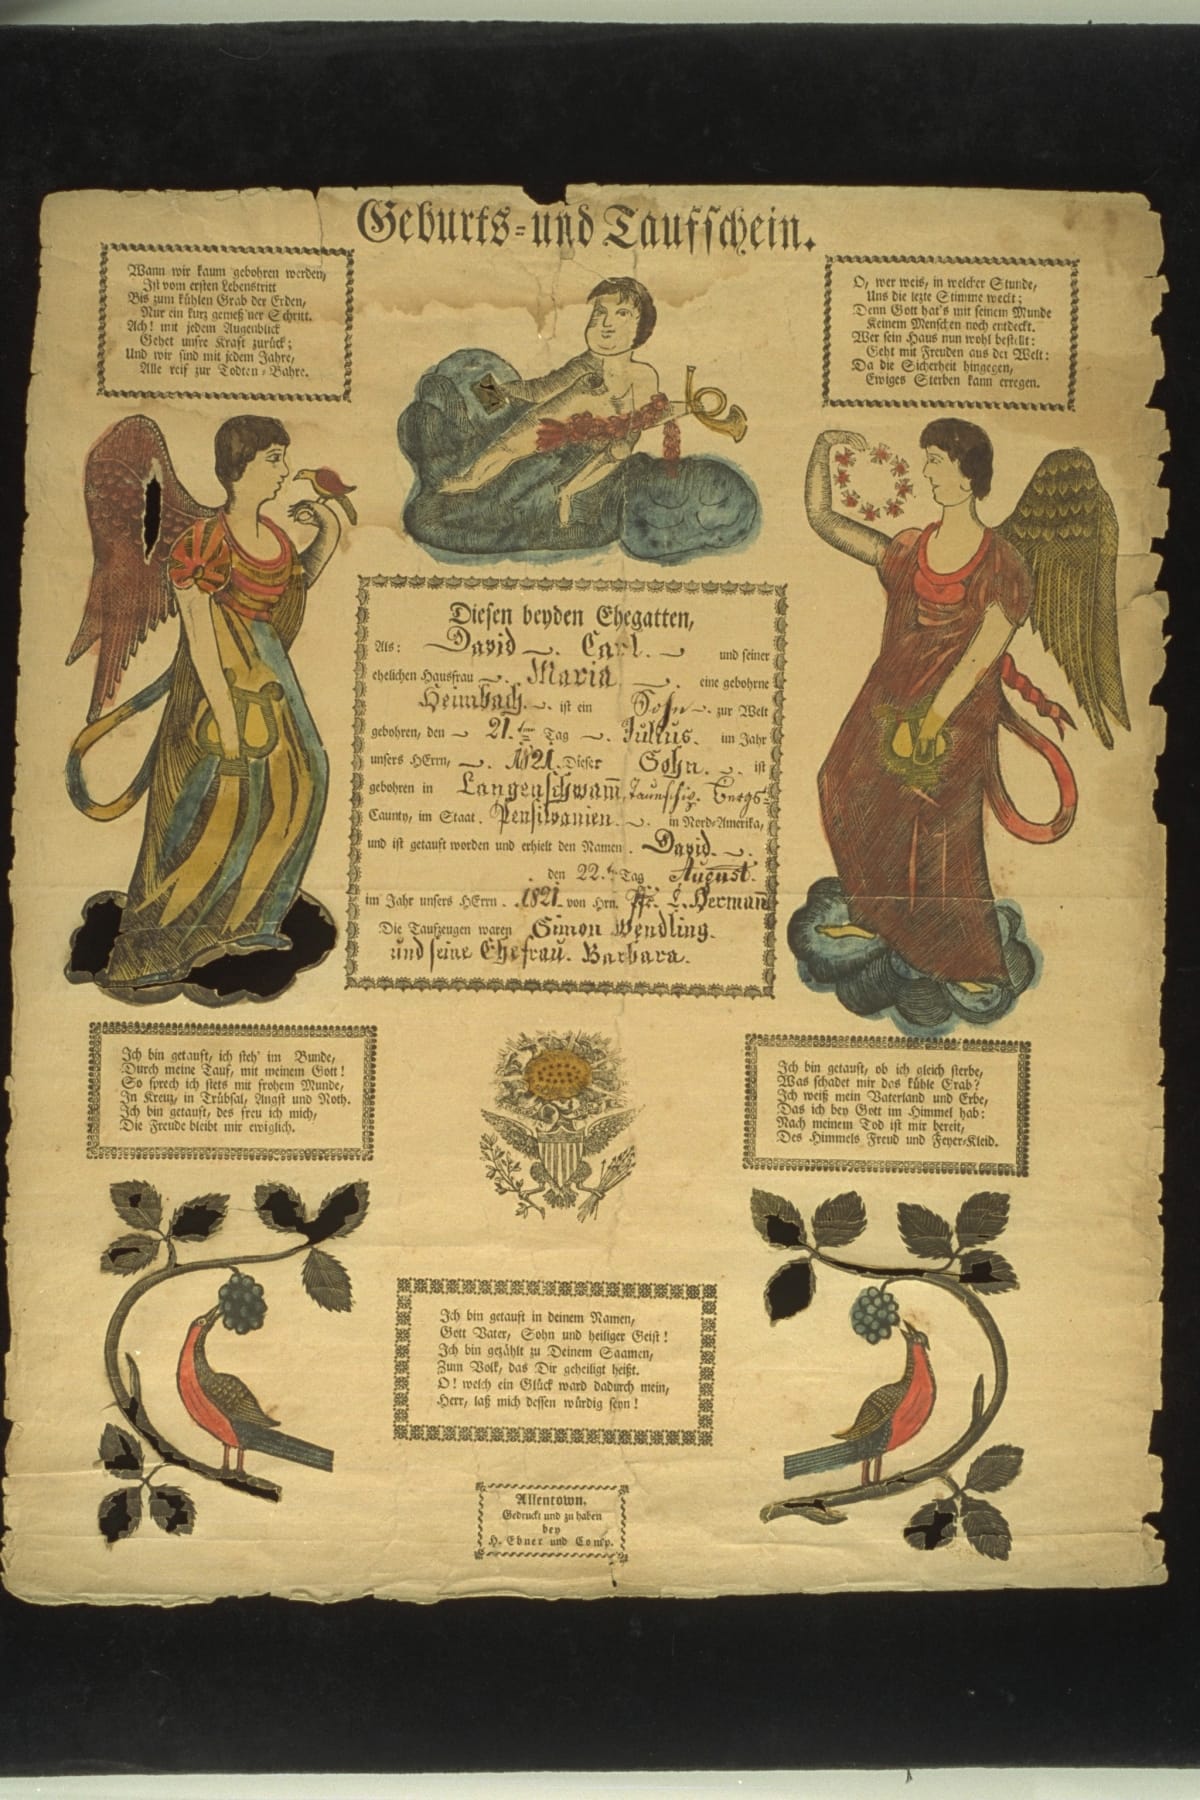 Geburts- und Taufschein.
Wann wir kaum gebohren werden,
Ist vom ersten Lebenstritt
Bis zum kühlen Grab der Erden,
Nur ein kurz gemeß'ner Schritt.
Ach! mit jedem Augenblick
Gehet unsre Kraft zurück;
Und wir sind mit jedem Jahre,
Alle reif zur Todten-Bahre.
O, wer weis, in welcher Stunde,
Uns die lezte Stimme weckt;
Denn Gott hat's mit seinem Munde
Keinem Menschen noch entdeckt.
Wer sein Haus nun wohl bestellt:
Geht mit Freuden aus der Welt:
Da die Sicherheit hingegen,
Ewiges Sterben kann erregen.
Diesen beyden Ehegatten,
Als: David Carl. und seiner
ehelichen Hausfrau Maria eine gebohrne
Heimbach. ist ein Sohn zur Welt
gebohren, den 21. Tag Julius. im Jahr
unsers HErrn, 1821. Dieser Sohn. ist
gebohren in Langenschwam̅, Taunschip. Bergs
Caunty, im Staat. Pensilvanien. in Nord-Amerika,
und ist getauft worden und erhielt den Namen. David.
den 22. Tag August.
im Jahr unsers HErrn. 1821. von Hrn. Pfr. L. Herman̅
Die Taufzeugen waren Simon Wendling.
und seine Ehefrau. Barbara.
Ich bin getauft, ich steh' im Bunde,
Durch meine Tauf, mit meinem Gott!
So sprech ich stets mit frohem Munde,
In Kreuz, in Trübsal, Angst und Noth.
Ich bin getauft, des freu ich mich,
Die Freude bleibt mir ewiglich.
Ich bin getauft, ob ich gleich sterbe,
Was schadet mir das kühle Grab?
Ich weiß mein Vaterland und Erbe,
Das ich bey Gott im Himmel hab:
Nach meinem Tod ist mir bereit,
Des Himmels Freud und Feyer-Kleid.
Ich bin getauft in deinem Namen,
Gott Vater, Sohn und heiliger Geist!
Ich bin gezählt zu Deinem Saamen,
Zum Volk, das Dir geheiligt heißt.
O! welch ein Glück ward dadurch mein,
Herr, laß mich dessen würdig seyn!
Allentown,
Gedruckt und zu haben
bey
H. Ebner und Comp.